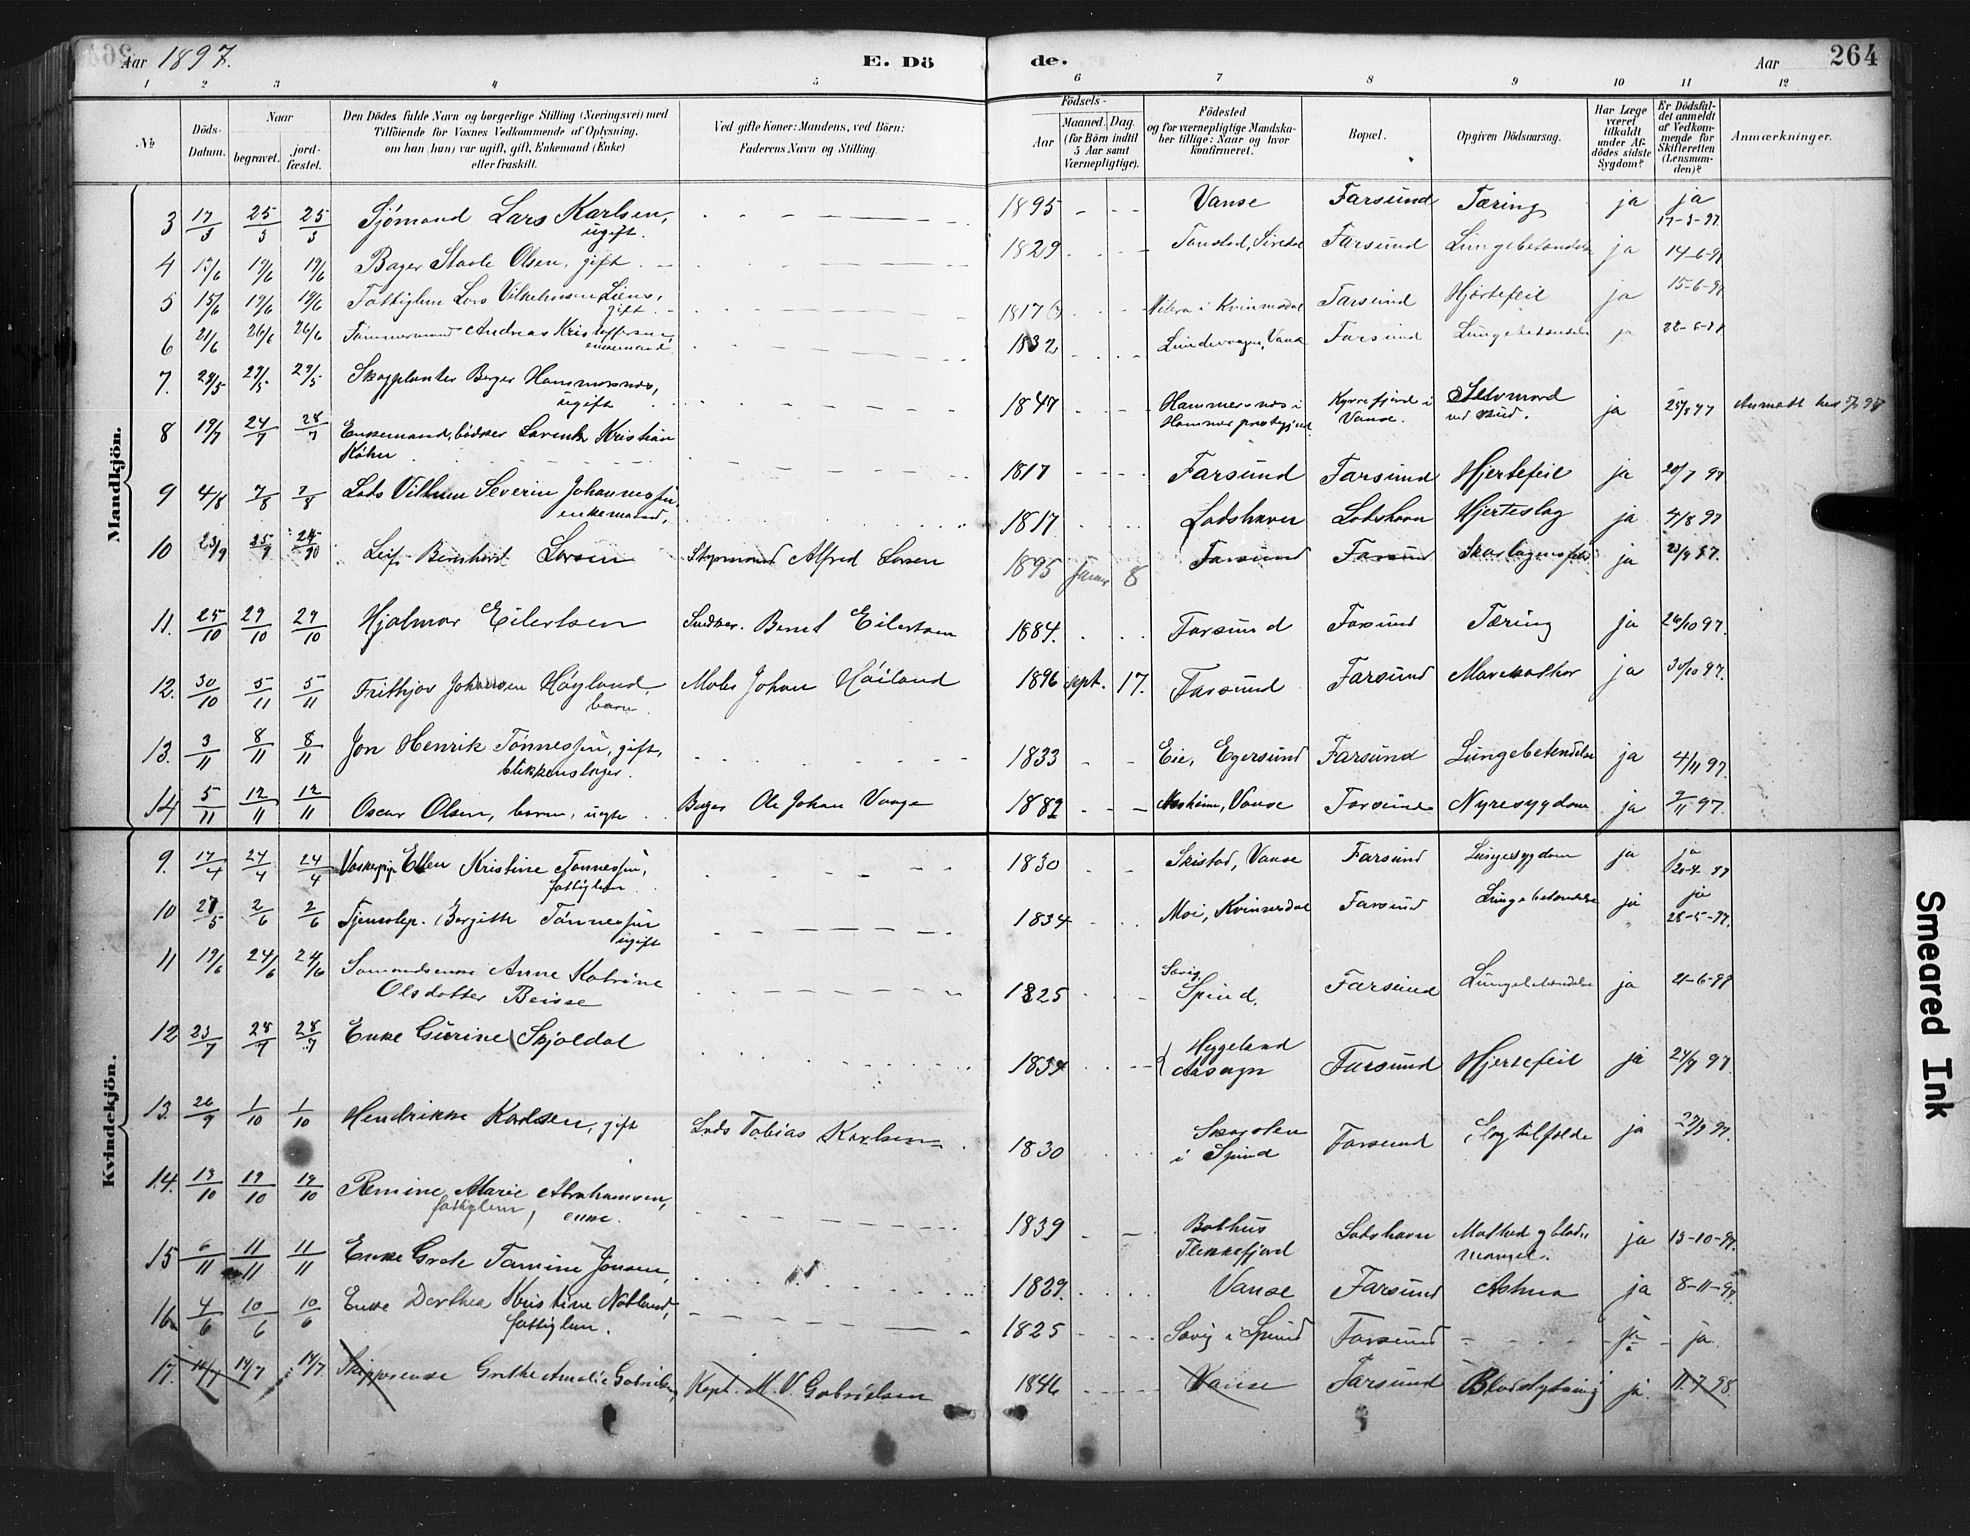 Aar 1897. E. Dö de. Aar 264
1 2 3 4 5 6 7 8 9 10 11 12
№ Döds-Datum. Naar begravet. jordfæstet. Den Dödes fulde Navn og borgerlige Stilling (Næringsvei) med Tilföiende for Voxnes Vedkommende af Oplysning, om han (hun) var ugift, gift, Enkemand (Enke) eller fraskilt. Ved gifte Koner: Mandens, ved Börn: Faderens Navn og Stilling. Födsels- Aar Maaned. Dag. (for Börn indtil 5 Aar samt Værnepligtige). Födested og for værnepligtige Mandskaber tillige: Naar og hvor konfirmeret. Bopæl. Opgiven Dödsaarsag. Har Læge været tilkaldt under Afdödes sidste Sygdom? Er Dödsfaldet anmeldt af Vedkommende for Skifteretten (Lensmanden)? Anmærkninger.
Mandkjön.
3 17/3 25/3 25/3 Sjömand Lars Karlsen, ugift. 1895 Vanse Farsund Tæring ja ja 17-3-97
4 13/6 19/6 19/6 Bager Staale Olsen, gift 1829 Tonstad, Siredal Farsund Lungebetændelse ja 14-6-97
5 15/6 19/6 19/6 Fattiglem Lars Vilhelmsen Liene, gift 1817 (?) i Kvinnesdal Farsund Hjertefeil ja 15-6-97
6 21/6 26/6 26/6 Tömmermand Andreas Kristoffersen, enkemand 1832 Lundevaagen, Vanse Farsund Lungebetændelse ja 22-6-97
7. 24/5 29/5 29/5 Skogplanter Berger Hammersnes, ugift 1847 Hammersnes i Hommer prestegjeld Kjørrefjord i Vanse. Selvmord ved skud. ja 25/5 97
8 19/7 24/7 28/7 Enkemand, bödker Lavents Kristian Köhn 1817 Farsund Farsund Hjertefeil ja 20/7 97
9 4/8 7/8 7/8 Lods Vilhum Severin Johannessen, enkemand, 1817 Lodshavn Lodshavn Hjerteslag ja 4/8 97
10 23/9 25/9 24/10 Leif Bernhard Larsen Styrmand Alfred Larsen 1895 Januar 8 Farsund Farsund Skarlagensfeber ja 23/9 97.
11. 25/10 29/10 29/10 Hjalmar Eilertsen Snedker. Bernt Eilertsen 1884. Farsund Farsund Tæring ja 26/10 97.
12. 30/10 5/11 5/11 Frithjov Johansen Höyland, barn. Maler Johan Höiland 1896 sept. 17. Farsund Farsund Mavekathar ja 30/10 97.
13. 3/11 8/11 8/11 Jon Henrik Tönnessen, gift, blikkenslager. 1833 Eie, Egersund Farsund Lungebetendelse ja 4/11 97.
14 5/11 12/11 12/11 Oscar Olsen, barn, uegte Bager Ole Johan Vaage 1882 Vanse Farsund Nyresygdom ja 7/11 97.
Kvindekjön.
9. 17/4 24/4 24/4 Vaskepige Ellen Kristine Tönnessen, fattiglem. 1830 Skistad, Vanse Farsund Lungesygdom ja ja 20-4-97
10 27/5 2/6 2/6 Tjenestep. Bergith Tönnessen ugift 1834 Moi, Kvinnesdal Farsund Lungebetændelse ja ja 28-5-97.
11 19/6 24/6 24/6 Sömandsenke Anne Katrine Olsdatter Beisse 1825 Savig, Spind. Farsund Lungebetændelse ja 21-6-97
12 23/7 28/7 28/7 Enke Gurine Skjoldal 1834 Heggeland Aasogn Farsund Hjertefeil ja 24/7 97
13. 26/9 1/10 1/10 Hendrikke Karlsen, gift Lods Tobias Karlsen 1830 Skarstein i Spind Farsund Slagtilfælde ja 27/9 97.
14. 13/10 19/10 19/10 Remine Marie Abrahamsen, fattiglem, enke. 1839 Bathus Flekkefjord Lodshavn Mathed og blodmangel. ja 13-10-97.
15 6/11 11/11 11/11 Enke Grete Tomine Jonsen, 1829. Vanse Farsund Astma ja 8-11-97.
16 4/6 10/6 10/6 Enke Dorthea Kristine Nötland, fattiglem. 1825 Savig i Spind Farsund ja ja.
17. 10/7 14/7 14/7 Skipperenke Grethe Amalie Gabrielsen, Kapt. M. V. Gabrielsen 1846 Vanse Farsund Blodstyrtning ja. 11-7-98.
Smeared Ink